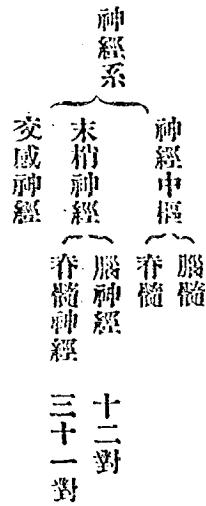 神經系
神經中樞
腦髓
脊髓
末梢神經
腦神經 十二對
脊髓神經 三十一對
交感神經